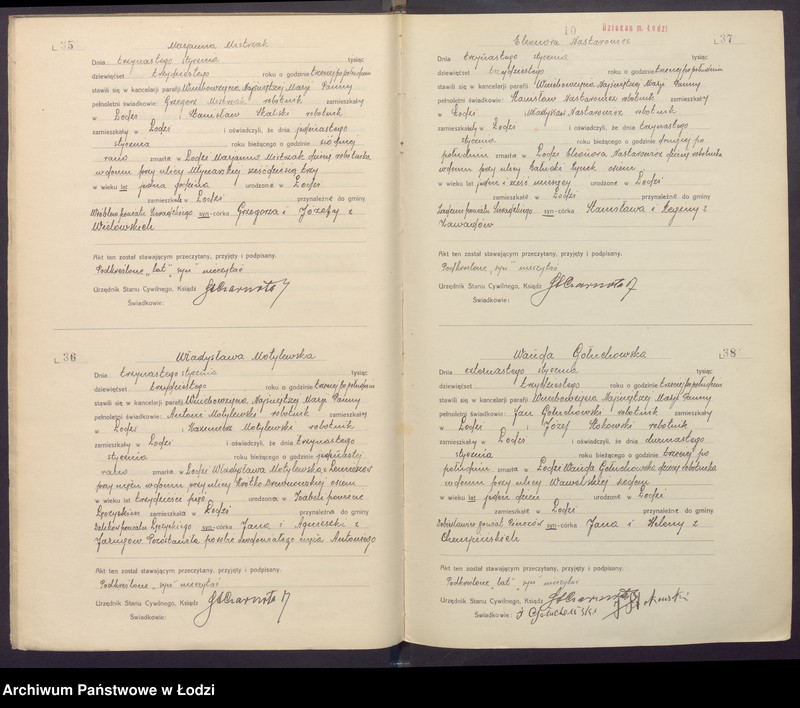 L 35
Marjanna Mistrzak
Dnia trzynastego stycznia tysiąc
dziewięćset trzydziestego roku o godzinie trzeciej po południu
stawili się w kancelarji parafji Wniebowzięcia Najświętszej Marji Panny
pełnoletni świadkowie: Grzegorz Mistrzak robotnik zamieszkały
w Łodzi i Stanisław Skalski robotnik
zamieszkały w Łodzi i oświadczyli, że dnia jedenastego
stycznia roku bieżącego o godzinie siódmej
rano zmarła w Łodzi Marjanna Mistrzak córka robotnika
w domu przy ulicy Młynarskiej sześćdziesiąt trzy
w wieku lat jedna godzina urodzona w Łodzi
zamieszkała w Łodzi przynależna do gminy
powiatu Sieradzkiego syn-córka Grzegorza i Józefy z
Akt ten został stawającym przeczytany, przyjęty i podpisany.
Podkreślone „lat", „syn" nieczytać
Urzędnik Stanu Cywilnego, Ksiądz
Świadkowie:
L 36
Władysława Motylewska
Dnia trzynastego stycznia tysiąc
dziewięćset trzydziestego roku o godzinie trzeciej po południu
stawili się w kancelarji parafji Wniebowzięcia Najświętszej Marji Panny
pełnoletni świadkowie: Antoni Motylewski robotnik zamieszkały
w Łodzi i Kazimierz Motylewski robotnik
zamieszkały w Łodzi i oświadczyli, że dnia trzynastego
stycznia roku bieżącego o godzinie jedenastej
rano zmarła w Łodzi Władysława Motylewska z Jarugów
przy mężu w domu przy ulicy Krótko Drewnowskiej osiem
w wieku lat trzydzieści pięć urodzona w
Łęczyckim zamieszkała w Łodzi przynależna do gminy
Dalików powiatu Łęczyckiego syn-córka Jana i Agnieszki z
Jarugów Pozostawiła po sobie owdowiałego męża Antoniego
Akt ten został stawającym przeczytany, przyjęty i podpisany.
Podkreślone „syn" nieczytać
Urzędnik Stanu Cywilnego, Ksiądz
Świadkowie:
10
Dziekan m. Łodzi
L 37
Eleonora Nastarowicz
Dnia trzynastego stycznia tysiąc
dziewięćset trzydziestego roku o godzinie trzeciej po południu
stawili się w kancelarji parafji Wniebowzięcia Najświętszej Marji Panny
pełnoletni świadkowie: Stanisław Nastarowicz robotnik zamieszkały
w Łodzi i Władysław Nastarowicz robotnik
zamieszkały w Łodzi i oświadczyli, że dnia trzynastego
stycznia roku bieżącego o godzinie drugiej po
południu zmarła w Łodzi Eleonora Nastarowicz córka robotnika
w domu przy ulicy Bałucki Rynek osiem
w wieku lat jeden i sześć miesięcy urodzona w Łodzi
zamieszkała w Łodzi przynależna do gminy
powiatu Sieradzkiego syn-córka Stanisława i Reginy z
Zawadów
Akt ten został stawającym przeczytany, przyjęty i podpisany.
Podkreślone „syn" nieczytać
Urzędnik Stanu Cywilnego, Ksiądz
Świadkowie:
L 38
Wanda Gołuchowska
Dnia czternastego stycznia tysiąc
dziewięćset trzydziestego roku o godzinie trzeciej po południu
stawili się w kancelarji parafji Wniebowzięcia Najświętszej Marji Panny
pełnoletni świadkowie: Jan Gołuchowski robotnik zamieszkały
w Łodzi i Józef Sokowski robotnik
zamieszkały w Łodzi i oświadczyli, że dnia dwunastego
stycznia roku bieżącego o godzinie trzeciej po
południu zmarła w Łodzi Wanda Gołuchowska córka robotnika
w domu przy ulicy Wawelskiej siedem
w wieku lat jeden dzień urodzona w Łodzi
zamieszkała w Łodzi przynależna do gminy
powiat syn-córka Jana i Heleny z
Akt ten został stawającym przeczytany, przyjęty i podpisany.
Podkreślone „lat", „syn" nieczytać
Urzędnik Stanu Cywilnego, Ksiądz
Świadkowie:
Archiwum Państwowe w Łodzi